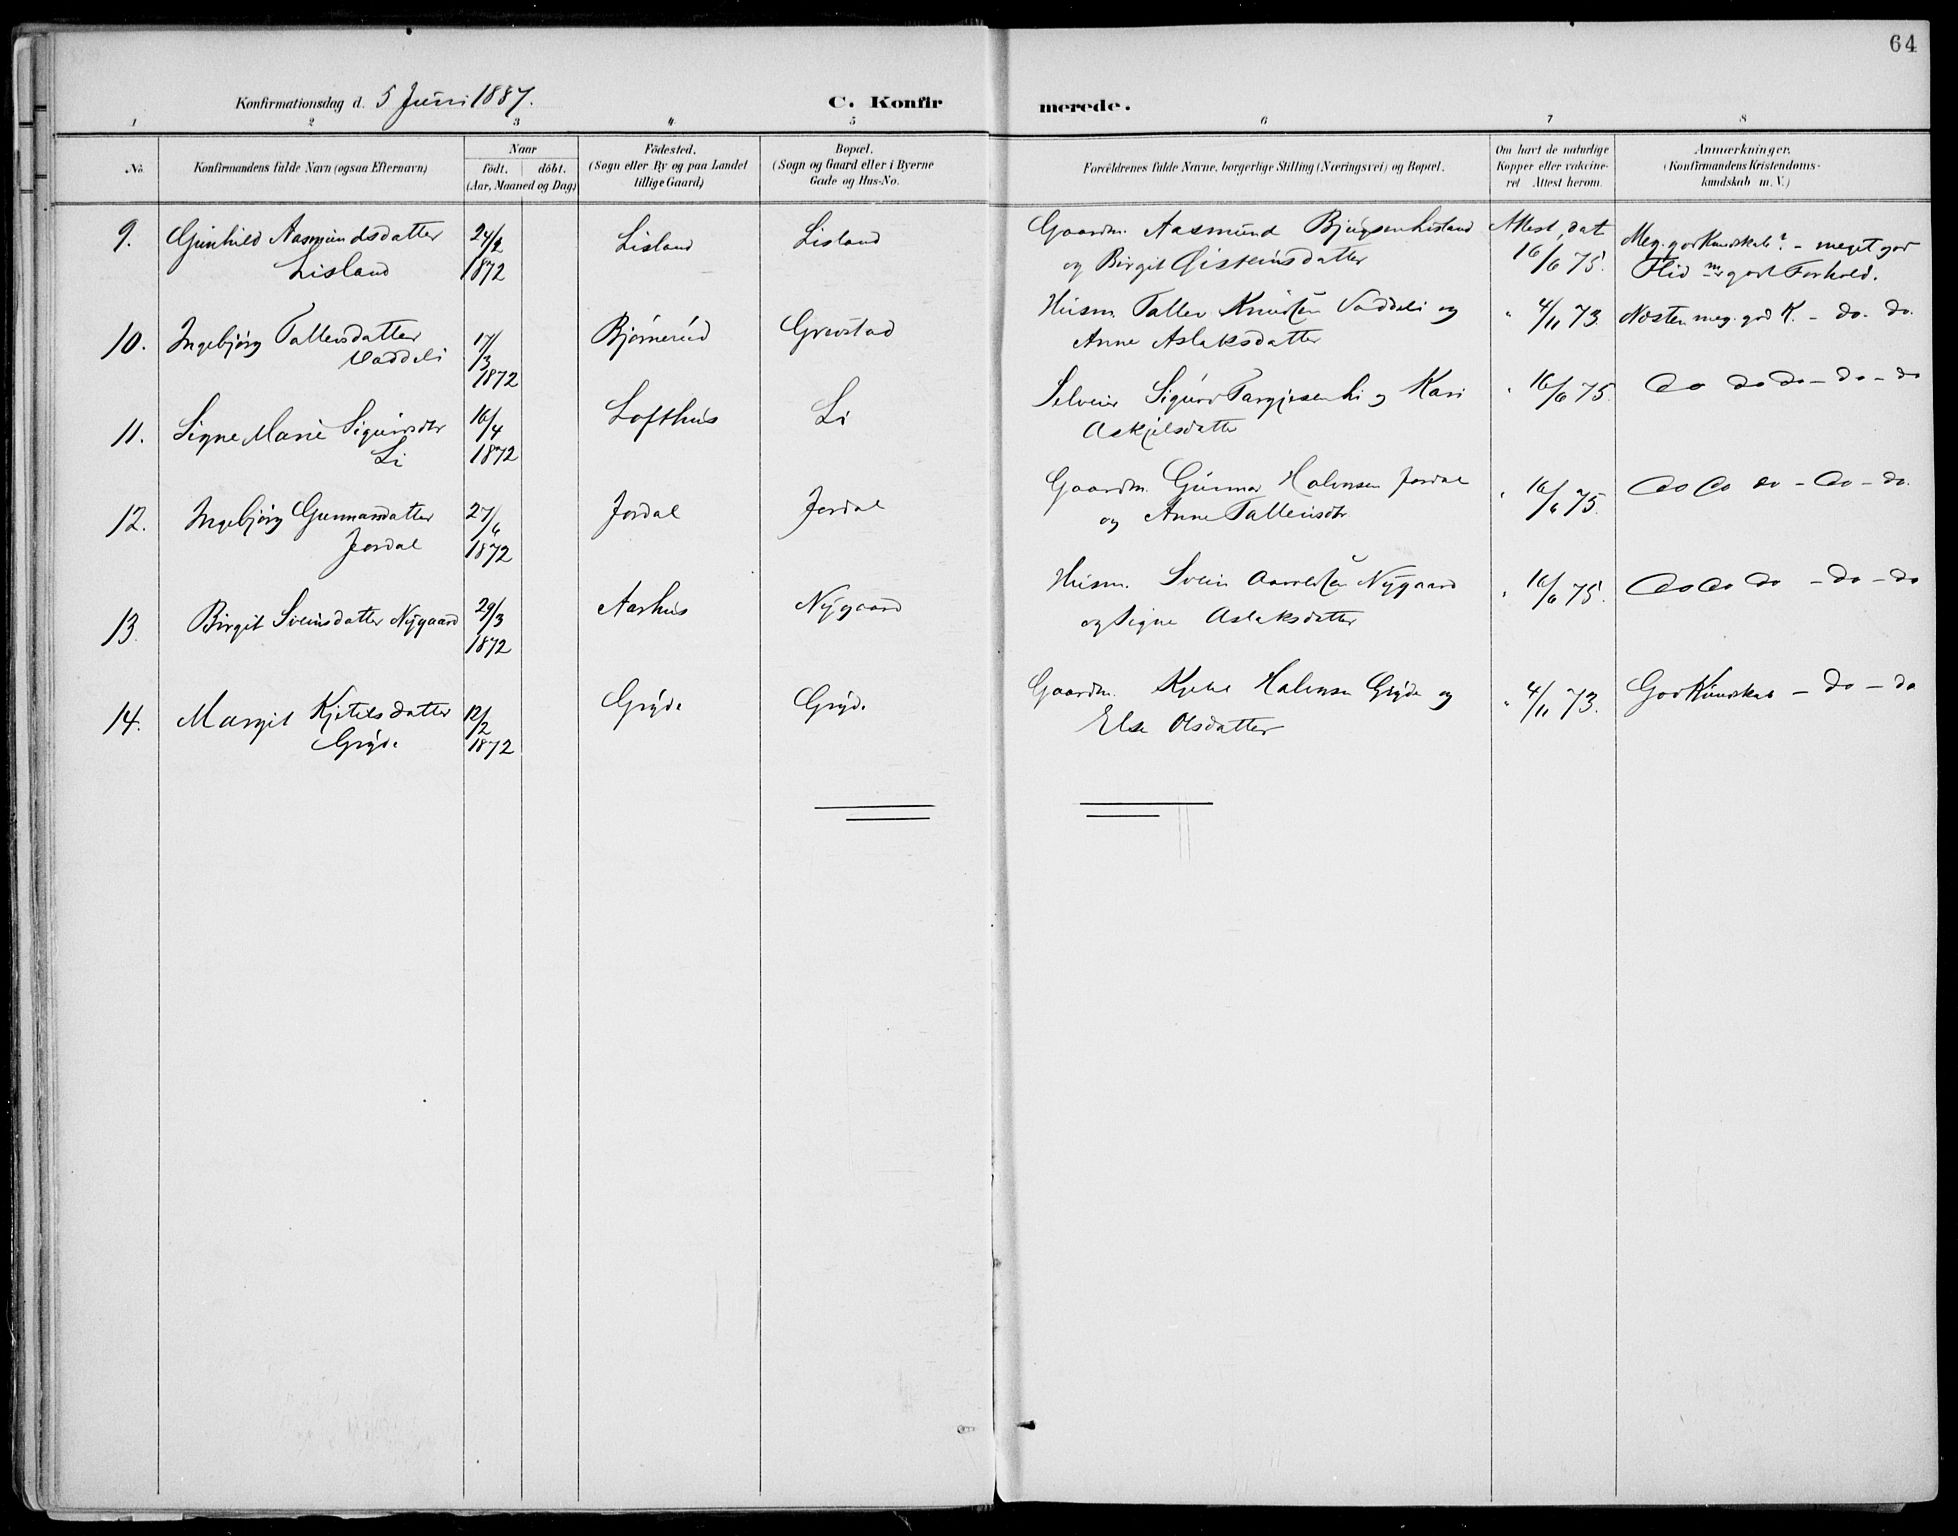 64
Konfirmationsdag d. 5 Juni 1887.
C. Konfirmerede.
1 2 3 4 5 6 7 8
No.
Konfirmandens fulde Navn (ogsaa Efternavn)
Naar
födt. döbt.
(Aar, Maaned og Dag)
Födested.
(Sogn eller By og paa Landet
tillige Gaard)
Bopæl.
(Sogn og Gaard eller i Byerne
Gade og Hus-No.
Forældrenes fulde Navne, borgerlige Stilling (Næringsvei) og Bopæl.
Om havt de naturlige
Kopper eller vakcine-
ret Attest herom.
Anmærkninger.
(Konfirmandens Kristendoms-
kundskab m. V.)
9. Gunhild Aasmundsdatter 24/2 Lisland Lisland Gaardm. Aasmund Bjugsen Lisland Attest, dat.
Lisland 1872 og Birgit Eisteinsdatter 16/6 75. Meg. god Kundskab - meget god
Flid m godt Forhold.
10. Ingebjörg Tallevsdatter 17/3 Bjørnerud Grevstad Husm. Tallev Knutsen Vaddeli og " 4/11 73. Næsten meg. god K. - do. do.
Vaddeli 1872 Anne Aslaksdatter
11. Signe Marie Sigursdtr 16/4 Lofthus Li Selveier Sigurd Targjesen Li og Kari " 16/6 75. do do do - do - do
Li 1872 Askjelsdatter
12. Ingebjörg Gunnarsdatter 27/6 Jordal Jordal Gaardm. Gunnar Halvorsen Jordal " 16/6 75. do do do - do - do.
Jordal 1872 og Anne Tallevsdtr
13. Birgit Sveinsdatter Nygaard 29/3 Aarhus Nygaard Husm. Svein Nygaard " 16/6 75. do do do - do - do
1872 og Signe Aslaksdatter
14. Margit Kjetilsdatter 12/2 Gryde Gryde Gaardm. Kjetil Halvorsen Gryde og " 4/11 73. God Kundskab - do - do
Gryde 1872 Else Olsdatter